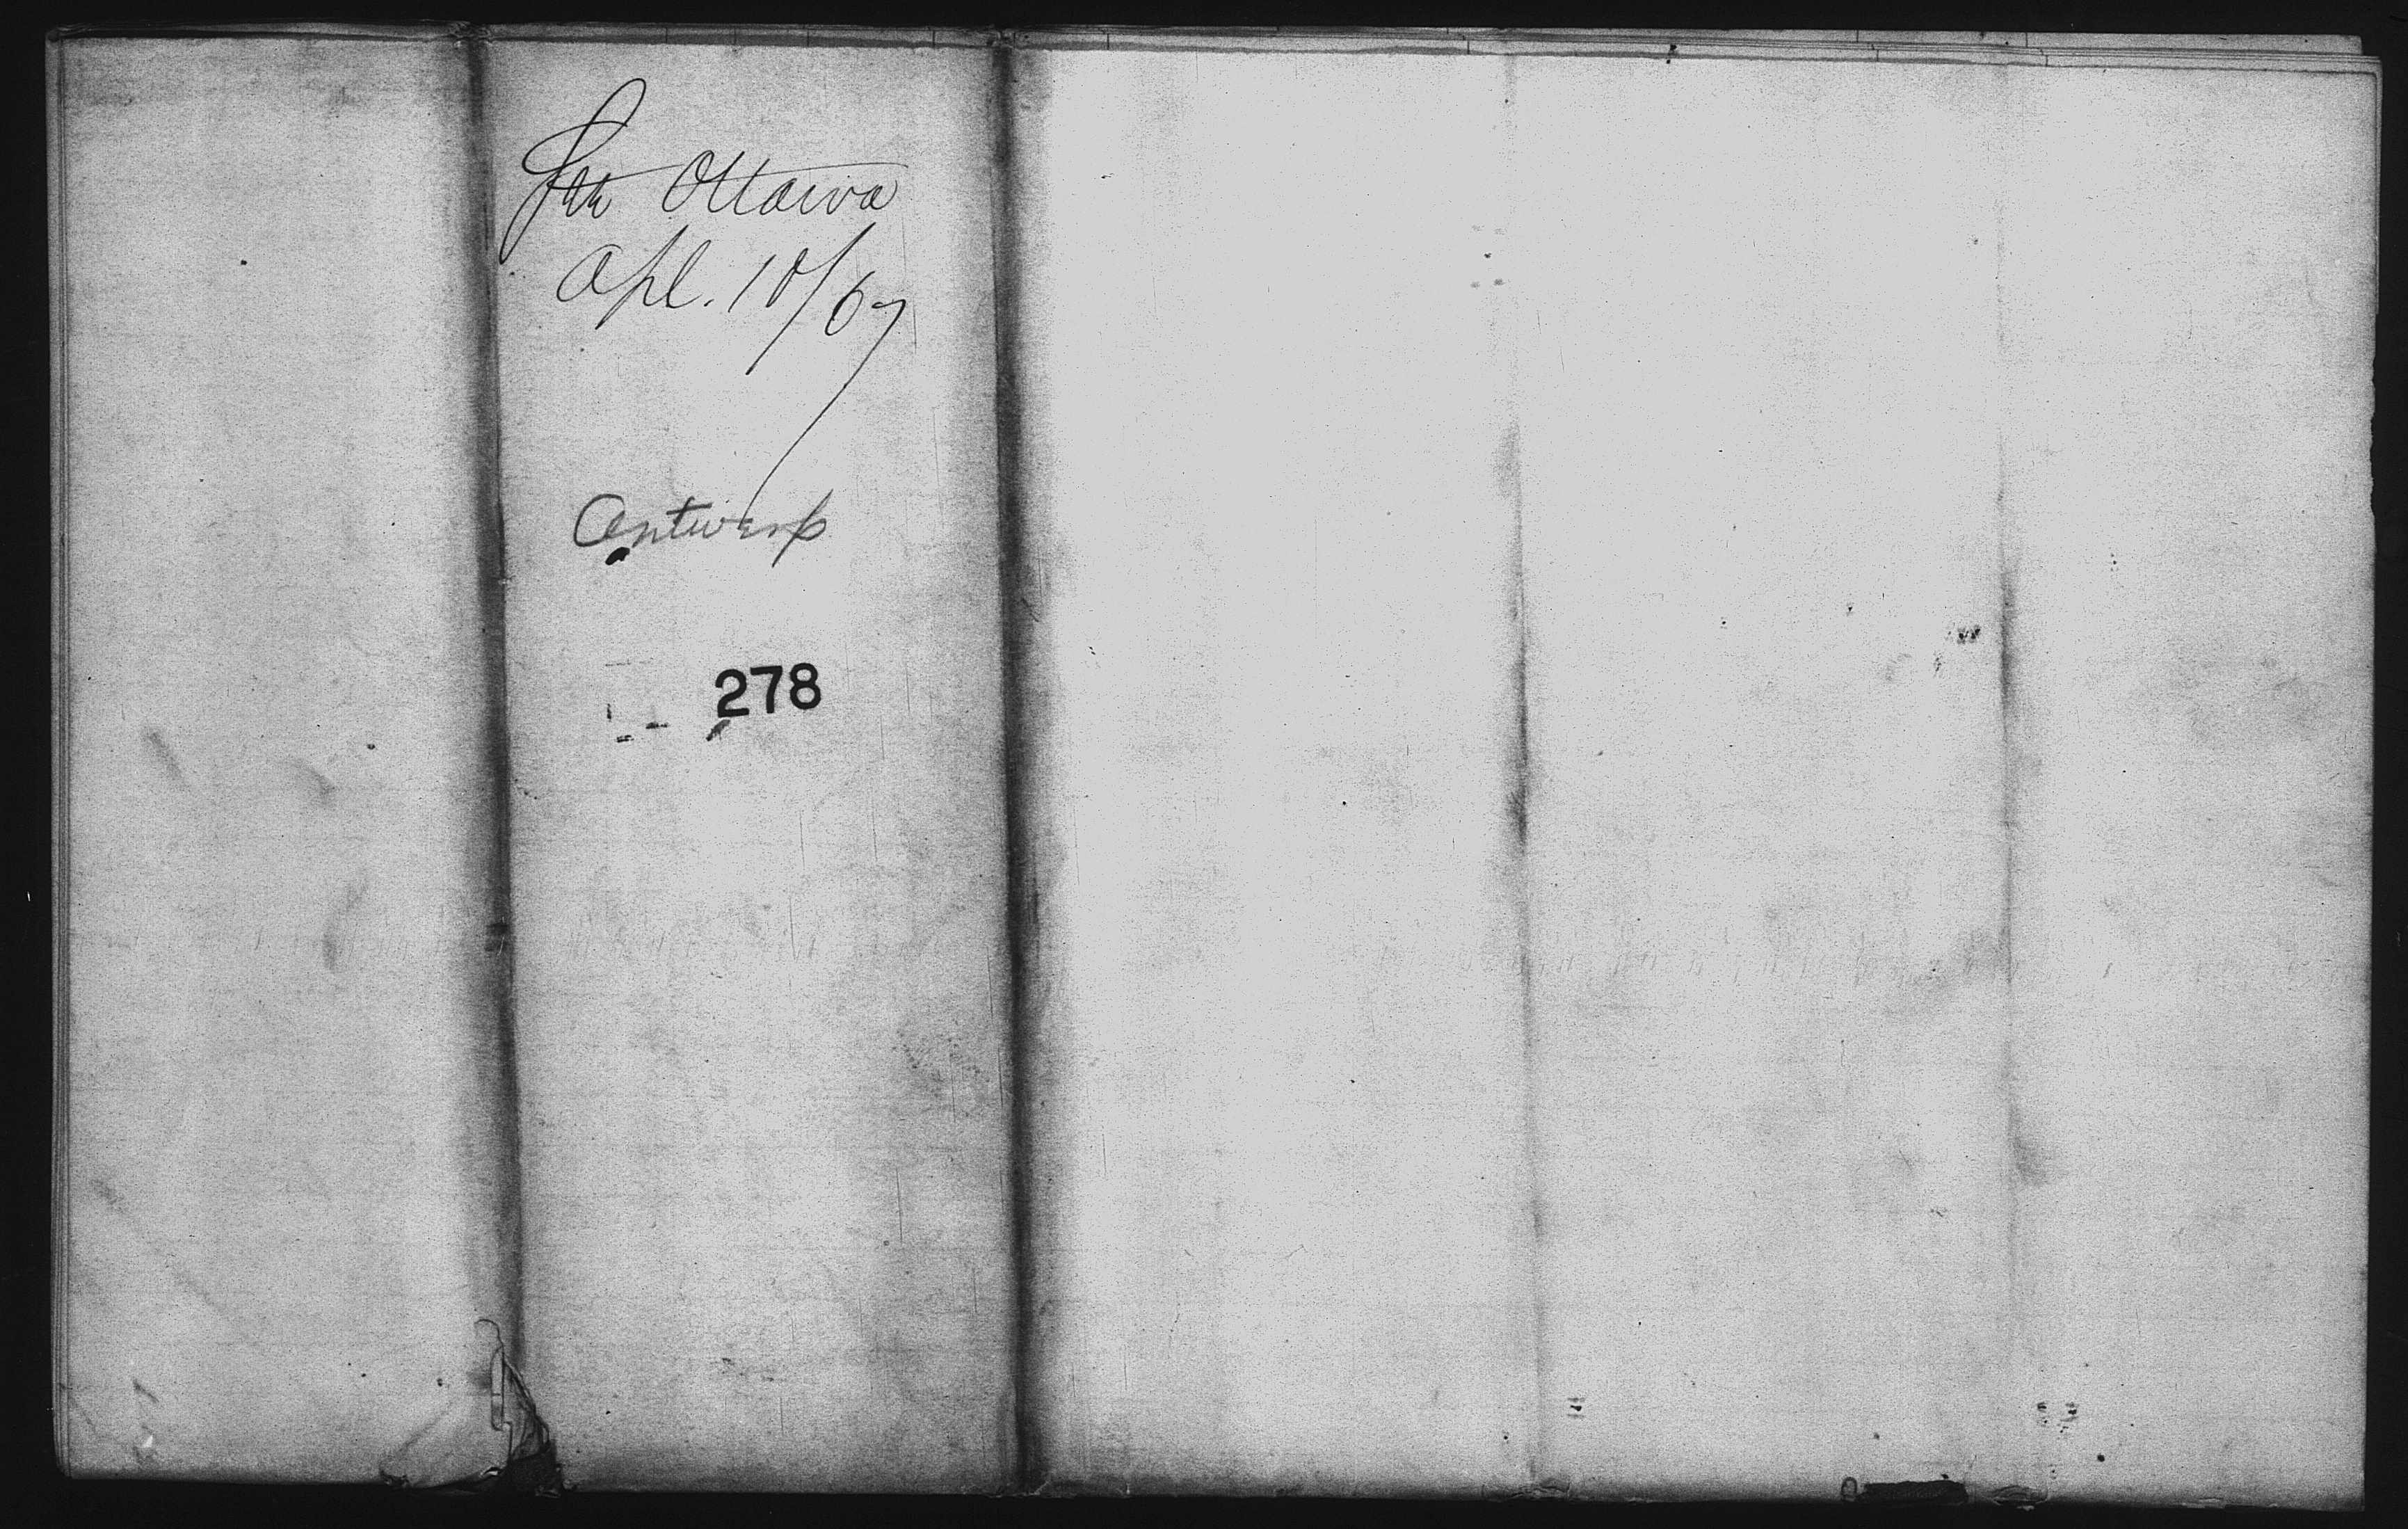 Ottawa
Apl. 10/67
Antwerp
278